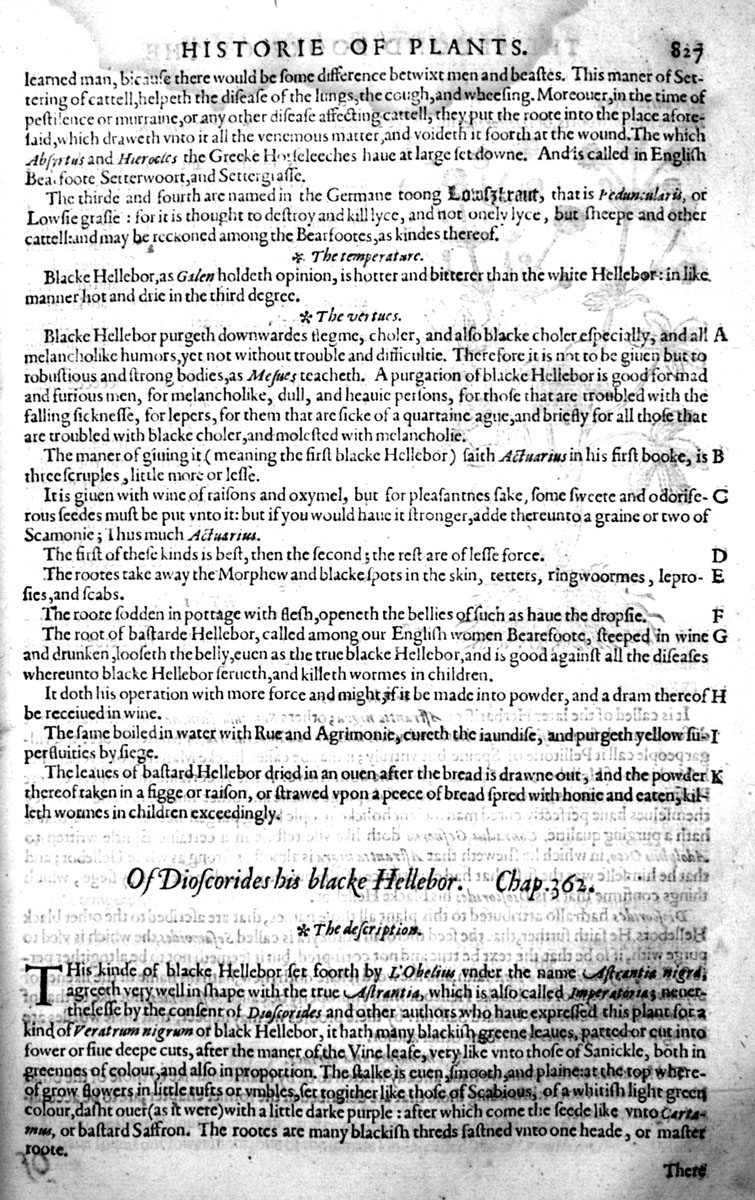 HISTORIE OF PLANTS. 827
learned man, bicause there would be some difference betwixt men and beastes. This maner of Set-
tering of cattell, helpeth the disease of the lungs, the cough, and wheesing. Moreouer, in the time of
pestilence or murraine, or any other disease affecting cattell, they put the roote into the place afore-
said, which draweth vnto it all the venemous matter, and voideth it foorth at the wound. The which
Absyrtus and Hierocles the Greeke Horseleeches haue at large set downe. And is called in English
Bearfoote, Setterwoort, and Settergrasse.
The thirde and fourth are named in the Germane toong Lowszkraut, that is Peduncularis, or
Lowsie grasse: for it is thought to destroy and kill lyce, and not onely lyce, but sheepe and other
cattell: and may be reckoned among the Bearfootes, as kindes thereof.
* The temperature.
Blacke Hellebor, as Galen holdeth opinion, is hotter and bitterer than the white Hellebor: in like
manner hot and drie in the third degree.
* The vertues.
Blacke Hellebor purgeth downwardes flegme, choler, and also blacke choler especially, and all A
melancholike humors, yet not without trouble and difficultie. Therefore it is not to be giuen but to
robustious and strong bodies, as Mesues teacheth. A purgation of blacke Hellebor is good for mad
and furious men, for melancholike, dull, and heauie persons, for those that are troubled with the
falling sicknesse, for lepers, for them that are sicke of a quartaine ague, and briefly for all those that
are troubled with blacke choler, and molested with melancholie.
The maner of giuing it (meaning the first blacke Hellebor) saith Actuarius in his first booke, is B
three scruples, little more or lesse.
It is giuen with wine of raisons and oxymel, but for pleasantnes sake, some sweete and odorife- C
rous seedes must be put vnto it: but if you would haue it stronger, adde thereunto a graine or two of
Scamonie; Thus much Actuarius.
The first of these kinds is best, then the second; the rest are of lesse force. D
The rootes take away the Morphew and blacke spots in the skin, tetters, ringwoormes, lepro- E
sies, and scabs.
The roote sodden in pottage with flesh, openeth the bellies of such as haue the dropsie. F
The root of bastarde Hellebor, called among our English women Bearefoote, steeped in wine G
and drunken, looseth the belly, euen as the true blacke Hellebor, and is good against all the diseases
whereunto blacke Hellebor serueth, and killeth wormes in children.
It doth his operation with more force and might, if it be made into powder, and a dram thereof H
be receiued in wine.
The same boiled in water with Rue and Agrimonie, cureth the iaundise, and purgeth yellow su- I
perfluities by siege.
The leaues of bastard Hellebor dried in an ouen after the bread is drawne out, and the powder K
thereof taken in a figge or raison, or strawed vpon a peece of bread spred with honie and eaten, kil-
leth wormes in children exceedingly.
Of Dioscorides his blacke Hellebor. Chap. 362.
* The description.
THis kinde of blacke Hellebor set foorth by L'Obelius vnder the name Astrantia nigra,
agreeth very well in shape with the true Astrantia, which is also called Imperatoria; neuer-
thelesse by the consent of Dioscorides and other authors who haue expressed this plant for a
kind of Veratrum nigrum or black Hellebor, it hath many blackish greene leaues, parted or cut into
fower or fiue deepe cuts, after the maner of the Vine leafe, very like vnto those of Sanickle, both in
greennes of colour, and also in proportion. The stalke is euen, smooth, and plaine: at the top where-
of grow flowers in little tufts or vmbles, set togither like those of Scabious, of a whitish light green
colour, dasht ouer (as it were) with a little darke purple: after which come the seede like vnto Carta-
mus, or bastard Saffron. The rootes are many blackish threds fastned vnto one heade, or master
roote.
There